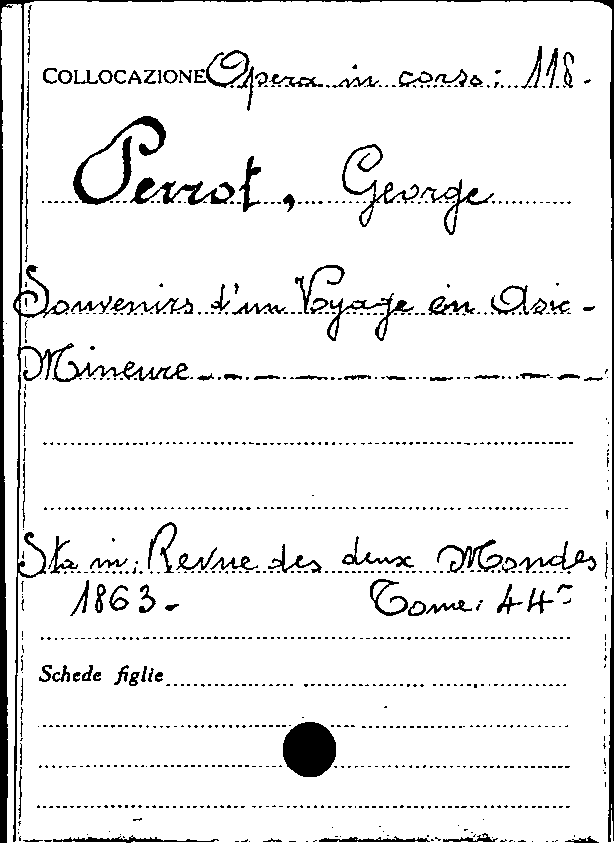 COLLOCAZIONE Opera in corso: 118.
Perrot, George
Souvenirs d'un Voyage en Asie-
Mineure
Sta in: Revue des deux Mondes
1863. Tome: 44º
Schede figlie